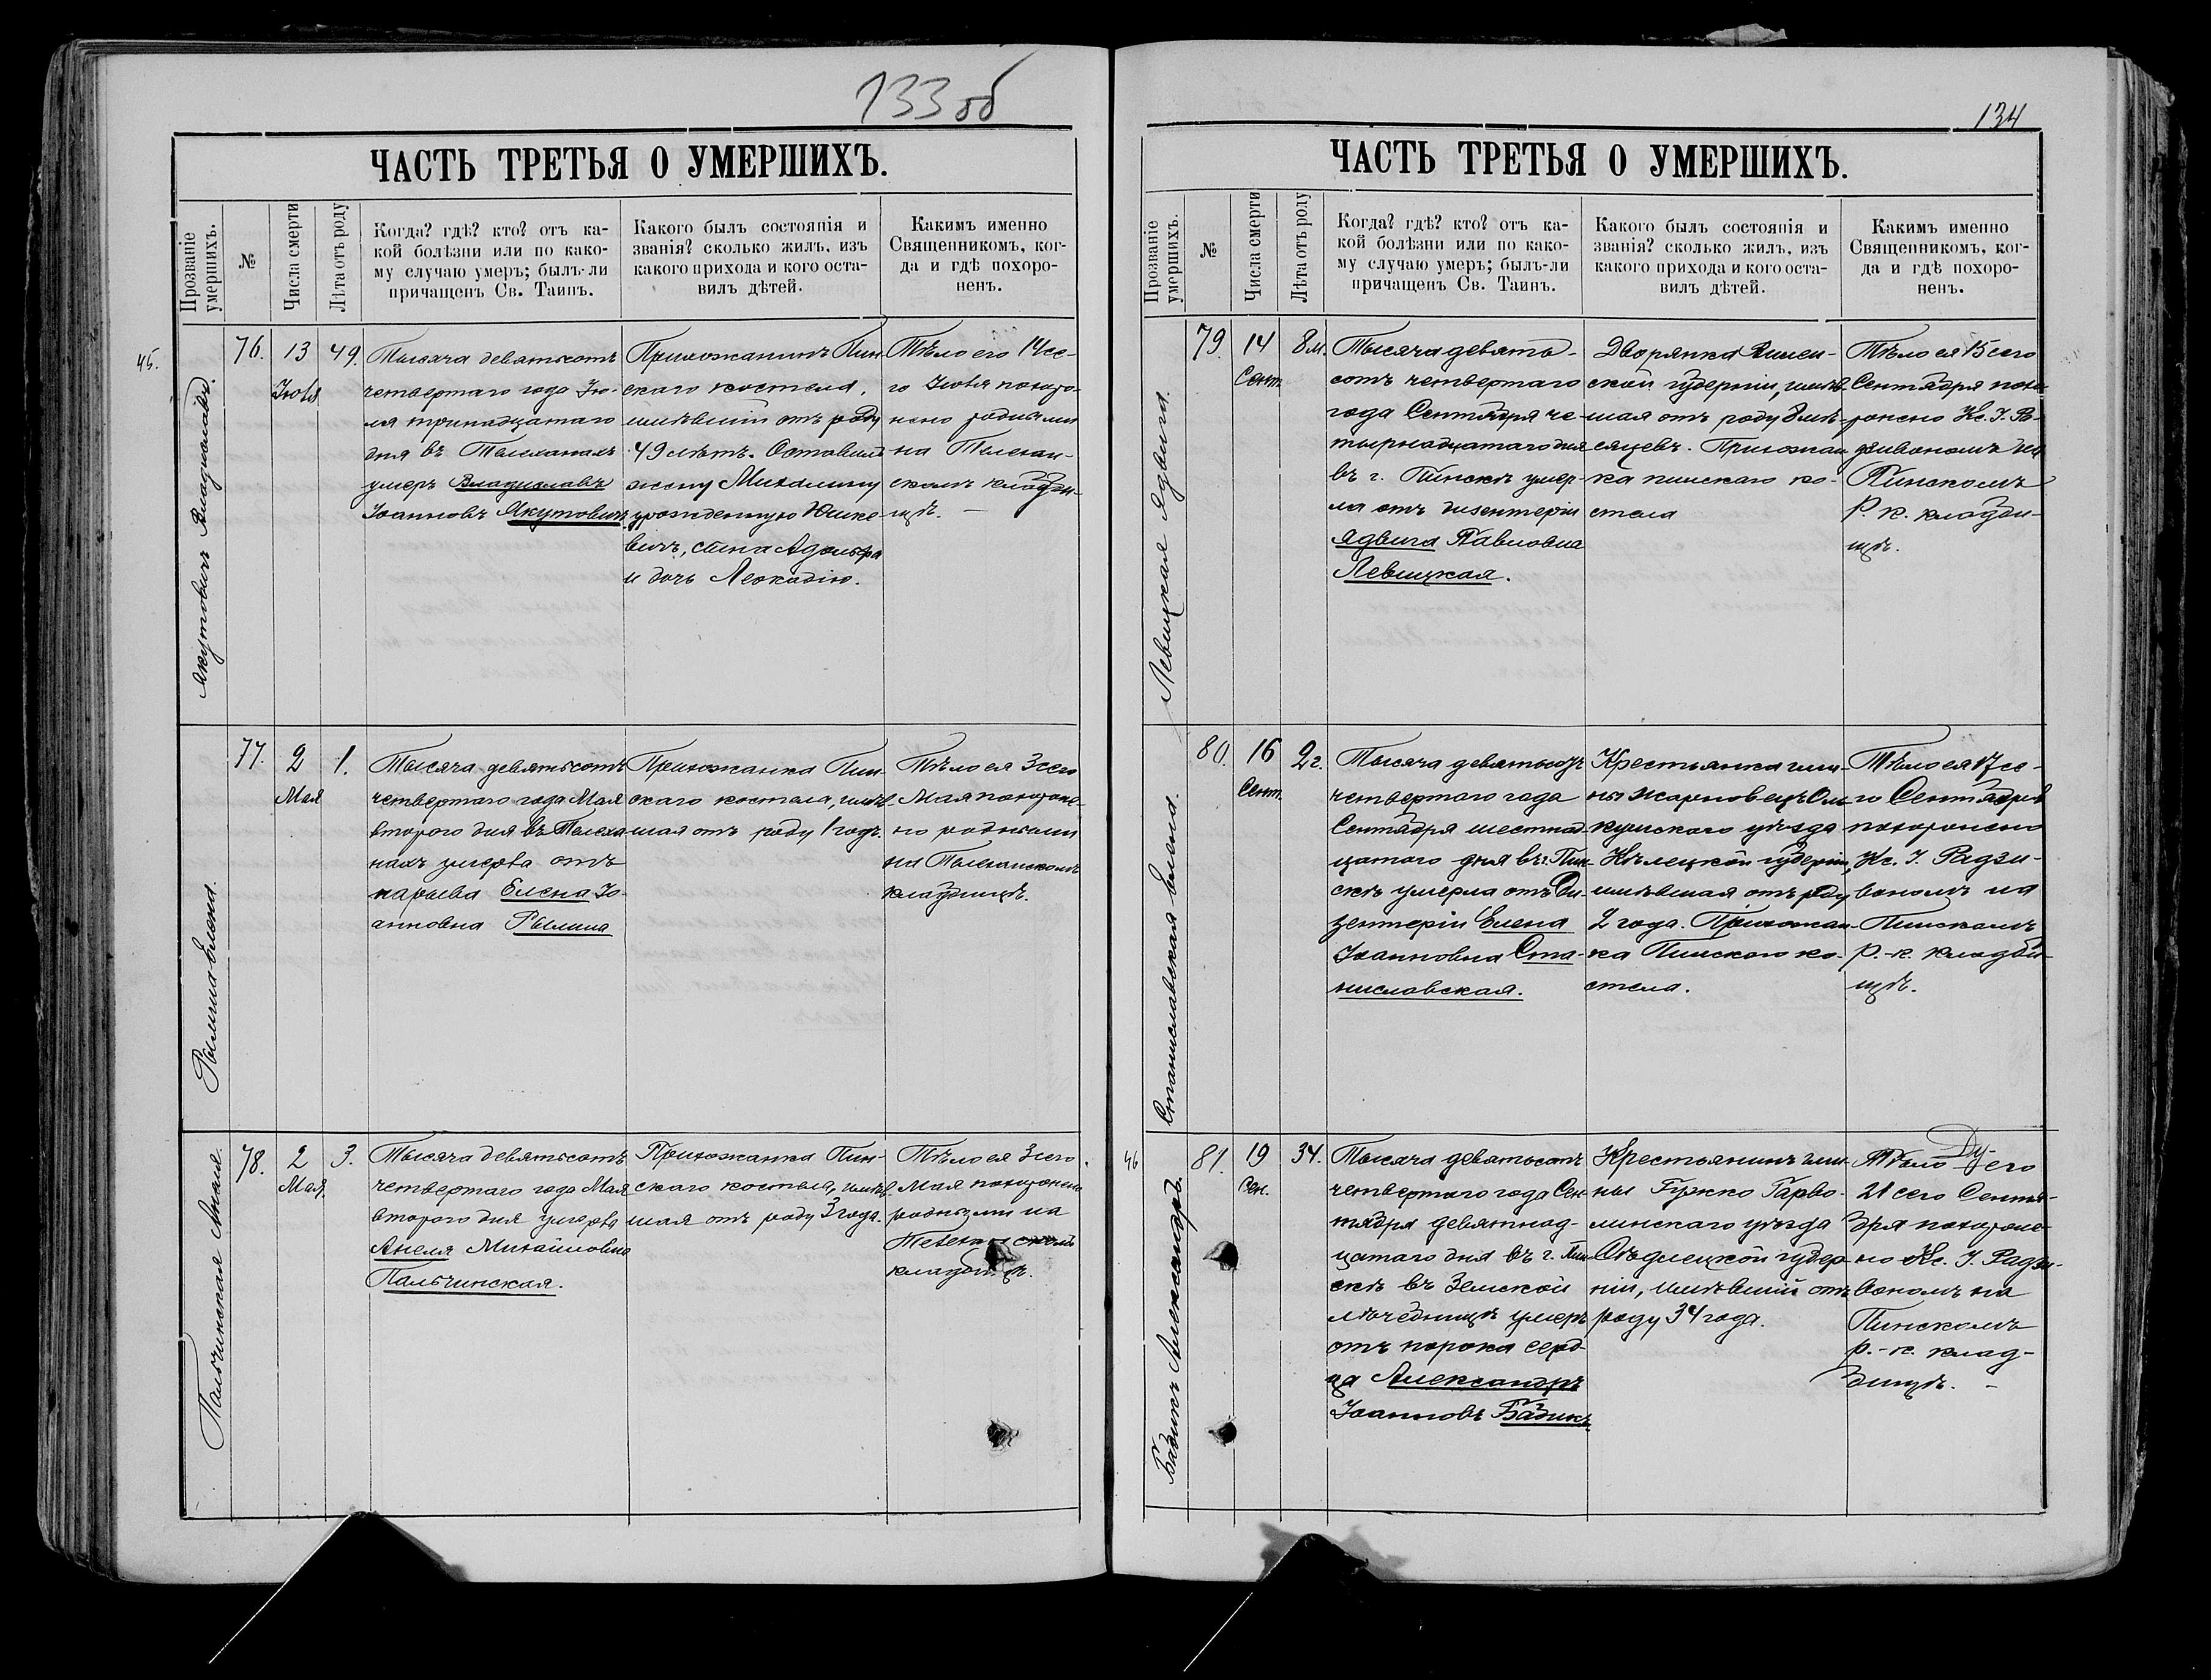 133 об
ЧАСТЬ ТРЕТЬЯ О УМЕРШИХЪ.
Прозваніе умершихъ.
№
Числа смерти
Лѣта отъ роду
Когда? гдѣ? кто? отъ ка-
кой болѣзни или по како-
му случаю умеръ; былъ-ли
причащенъ Св. Таинъ.
Какого былъ состоянія и
званія? сколько жилъ, изъ
какого прихода и кого оста-
вилъ дѣтей.
Какимъ именно
Священникомъ, ког-
да и гдѣ похоро-
ненъ.
45.
Якутовичъ Владиславъ.
76.
13
Іюля
49.
Тысяча девятьсотъ
четвертаго года Ію-
ля тринадцатаго
дня въ Телеханахъ
умеръ Владиславъ
Іоанновъ Якутовичъ
Прихожанинъ Пин-
скаго костела,
имѣвшій отъ роду
49 лѣтъ. Оставилъ
жену Михалину
урожденную Юшке-
вичъ, сына Адольфа
и дочь Леокадію.
Тѣло его 14 се-
го Іюля похоро-
нено родными
на Телехан-
скомъ кладби-
щѣ. —
Рылина Елена.
77.
2
Мая
1.
Тысяча девятьсотъ
четвертаго года Мая
второго дня въ Телеха
нахъ умерла отъ
нарыва Елена Іо-
анновна Рылина
Прихожанка Пин-
скаго костела, имѣв-
шая отъ роду 1 годъ.
Тѣло ея 3 сего
Мая похороне-
но родными
на Телеханскомъ
кладбищѣ.
Пальчинская Анеля.
78.
2
Мая.
3.
Тысяча девятьсотъ
четвертаго года Мая
второго дня умерла
Анеля Михайловна
Пальчинская.
Прихожанка Пин-
скаго костела, имѣв-
шая отъ роду 3 года.
Тѣло ея 3 сего
Мая похоронено
родными на
Телехан скомъ
кладби щѣ.
134
ЧАСТЬ ТРЕТЬЯ О УМЕРШИХЪ.
Прозваніе умершихъ.
№
Числа смерти
Лѣта отъ роду
Когда? гдѣ? кто? отъ ка-
кой болѣзни или по како-
му случаю умеръ; былъ-ли
причащенъ Св. Таинъ.
Какого былъ состоянія и
званія? сколько жилъ, изъ
какого прихода и кого оста-
вилъ дѣтей.
Какимъ именно
Священникомъ, ког-
да и гдѣ похоро-
ненъ.
Левицкая Ядвига.
79.
14
Сент.
8 м.
Тысяча девять-
сотъ четвертаго
года Сентября че-
тырнадцатаго дня
въ г. Пинскѣ умер-
ла отъ дизентеріи
Ядвига Павловна
Левицкая.
Дворянка Вилен-
ской губерніи, имѣв-
шая отъ роду 8 мѣ-
сяцевъ. Прихожан
ка пинскаго ко-
стела
Тѣло ея 15 сего
Сентября похо
ронено Кс. І. Ра-
дзивономъ на
Пинскомъ
р. к. кладби-
щѣ.
Станиславская Елена.
80.
16
Сент.
2 г.
Тысяча девятьсотъ
четвертаго года
Сентября шестнад
цатаго дня въ г. Пин-
скѣ умерла отъ Ди-
зентеріи Елена
Іоанновна Ста-
ниславская.
Крестьянка гми-
ны Жарновецъ Оль
кушскаго уѣзда
Кѣлецкой губерніи,
имѣвшая отъ роду
2 года. Прихожан-
ка Пинскаго ко-
стела.
Тѣло ея 17 се-
го Сентября
похоронено
Кс. І. Радзи-
вономъ на
Пинскомъ
р.-к. кладби-
щѣ.
46
Бадикъ Александръ.
81.
19
Сен.
34.
Тысяча девятьсотъ
четвертаго года Сен
тября девятнад-
цатаго дня въ г. Пин
скѣ въ Земской
лѣчебницѣ умеръ
отъ порока серд-
ца Александръ
Іоанновъ Бадикъ
Крестьянинъ гми-
ны Гужно Гарво-
линскаго уѣзда
Сѣдлецкой губер
ніи, имѣвшій отъ
роду 34 года.
Тѣло его
21 сего Сентя-
бря похороне-
но Кс. І. Радзи-
вономъ на
Пинскомъ
р.-к. клад-
бищѣ. —